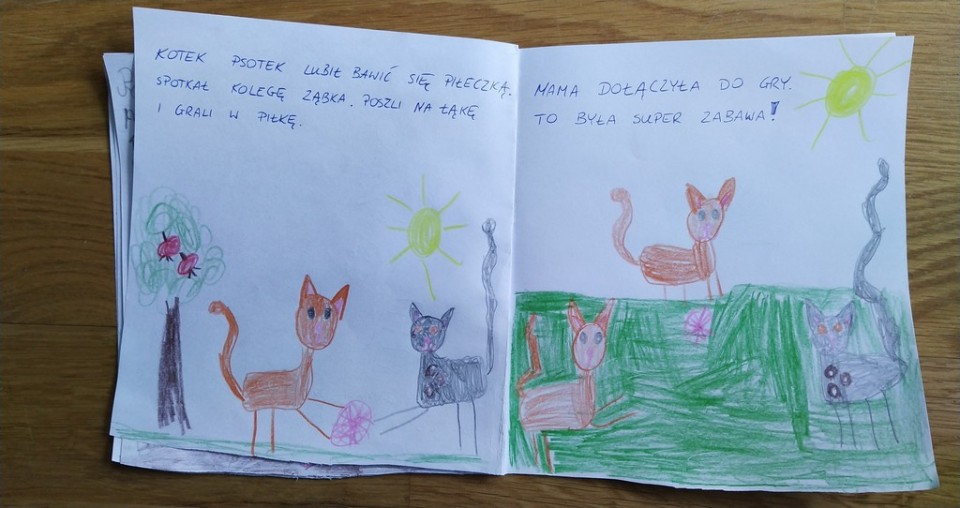 KOTEK PSOTEK LUBIŁ BAWIĆ SIĘ PIŁECZKĄ.
SPOTKAŁ KOLEGĘ ZĄBKA. POSZLI NA ŁĄKĘ
I GRALI W PIŁKĘ.
MAMA DOŁĄCZYŁA DO GRY.
TO BYŁA SUPER ZABAWA!